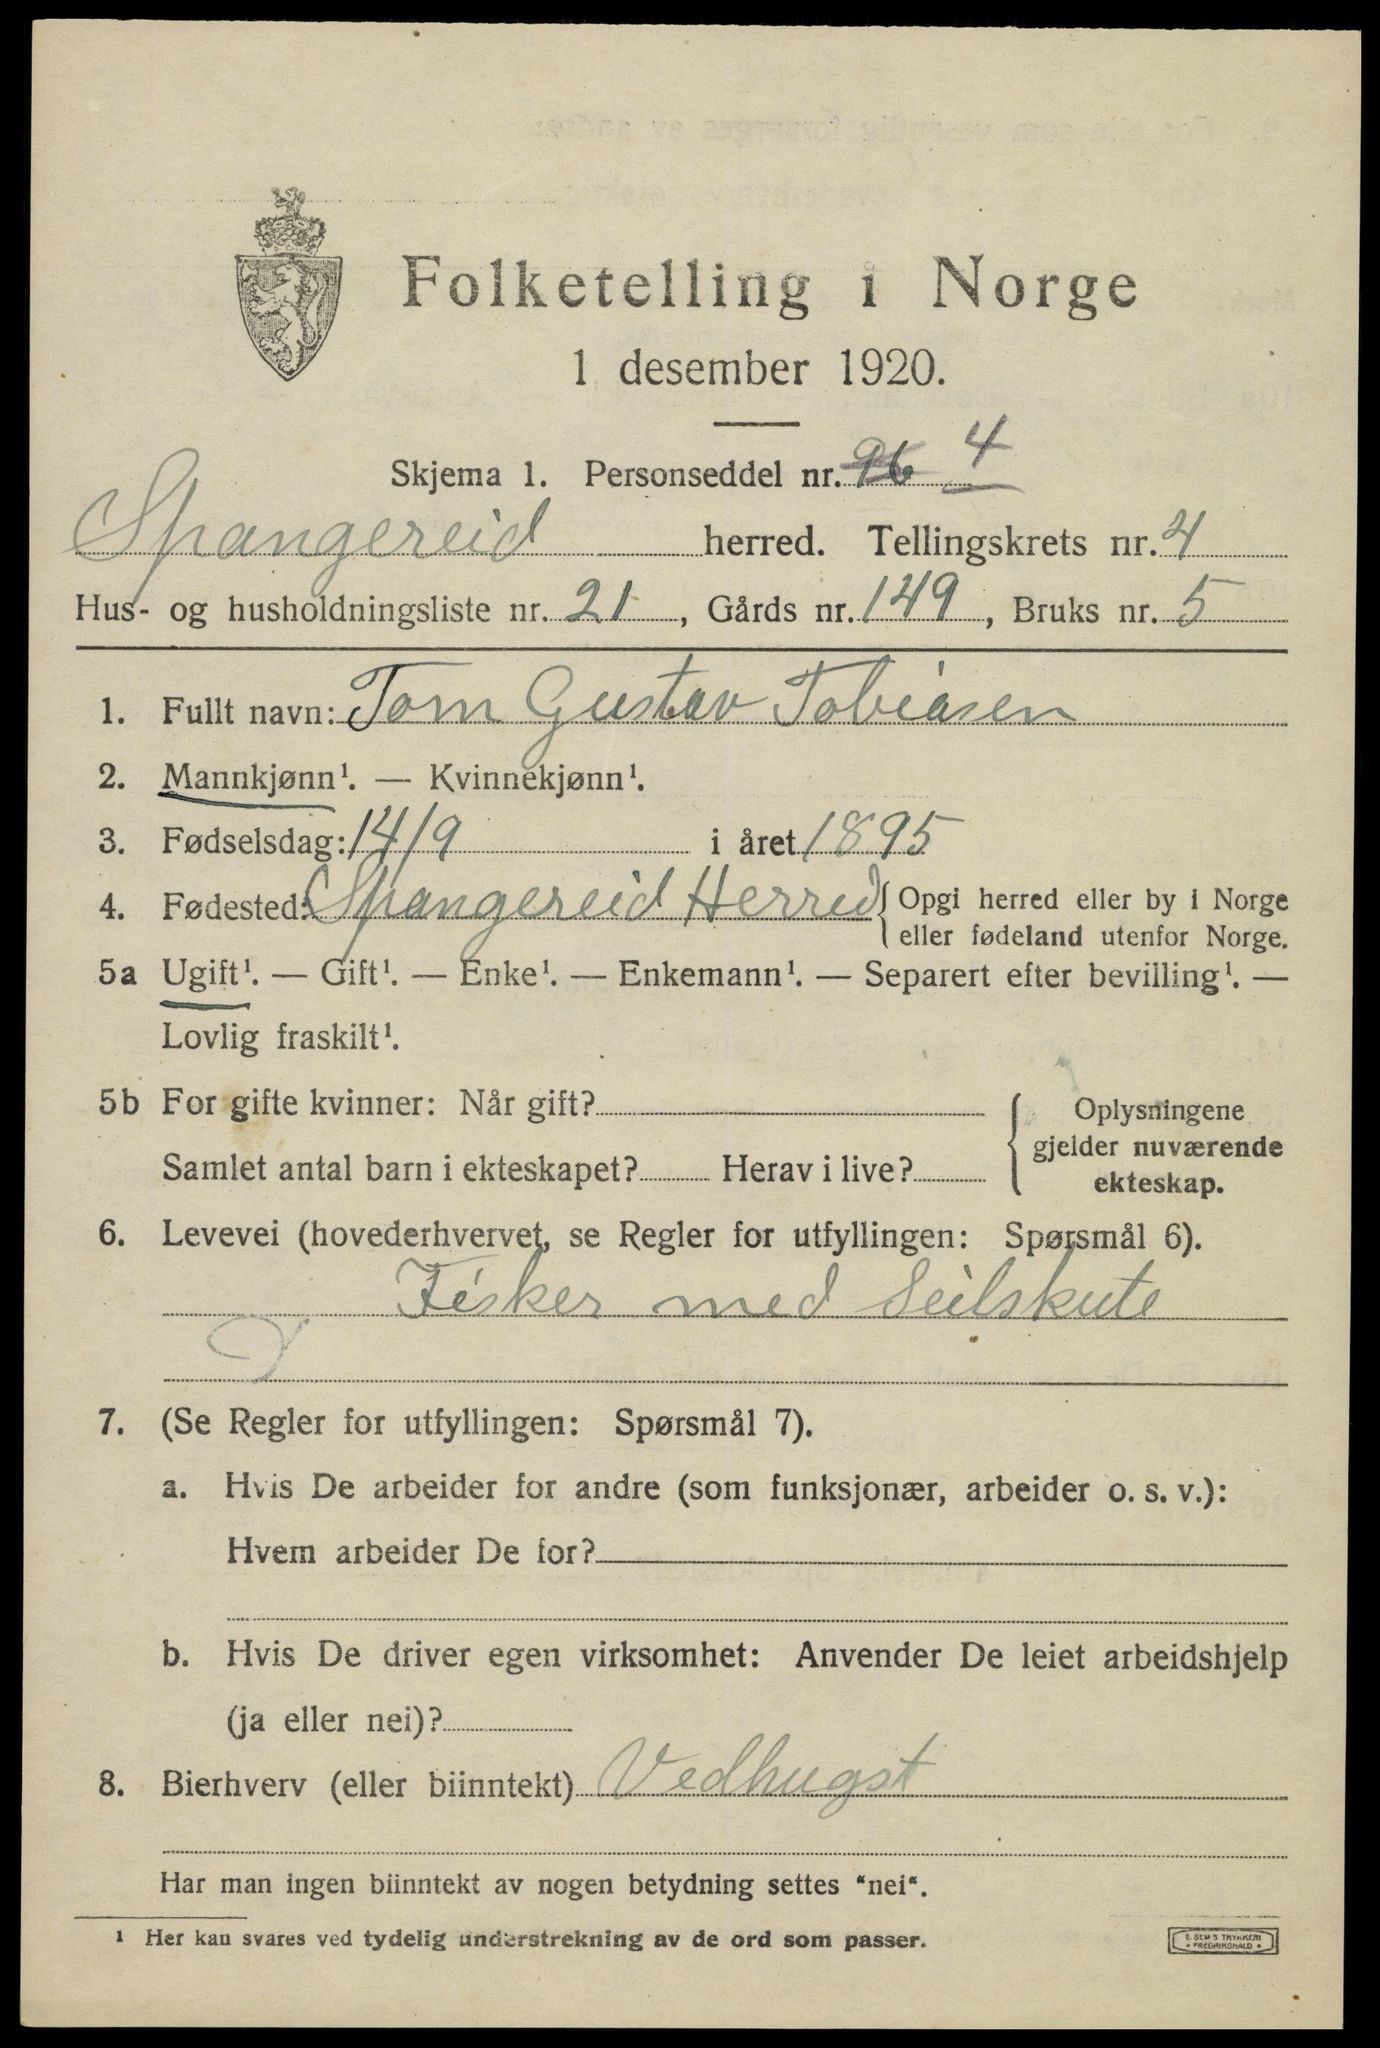 Folketelling i Norge
1 desember 1920.
Skjema 1. Personseddel nr. 96 4
Spangereid herred. Tellingskrets nr. 4
Hus- og husholdningsliste nr. 21, Gårds nr. 149, Bruks nr. 5
1. Fullt navn: Tom Gustav Tobiasen
2. Mannkjønn¹. — Kvinnekjønn¹.
3. Fødselsdag: 14/9 i året 1895
4. Fødested: Spangereid Herred { Opgi herred eller by i Norge
eller fødeland utenfor Norge.
5a Ugift¹. — Gift¹. — Enke¹. — Enkemann¹. — Separert efter bevilling¹. —
Lovlig fraskilt¹.
5b For gifte kvinner: Når gift?
Samlet antal barn i ekteskapet? Herav i live?
Oplysningene
gjelder nuværende
ekteskap.
6. Levevei (hovederhvervet, se Regler for utfyllingen: Spørsmål 6).
Fisker med Seilskute
7. (Se Regler for utfyllingen: Spørsmål 7).
a. Hvis De arbeider for andre (som funksjonær, arbeider o. s. v.):
Hvem arbeider De for?
b. Hvis De driver egen virksomhet: Anvender De leiet arbeidshjelp
(ja eller nei)?
8. Bierhverv (eller biinntekt) Vedhugst
Har man ingen biinntekt av nogen betydning settes "nei".
¹ Her kan svares ved tydelig understrekning av de ord som passer.
E. SEM'S TRYKKERI
* FREDRIKSHALD *